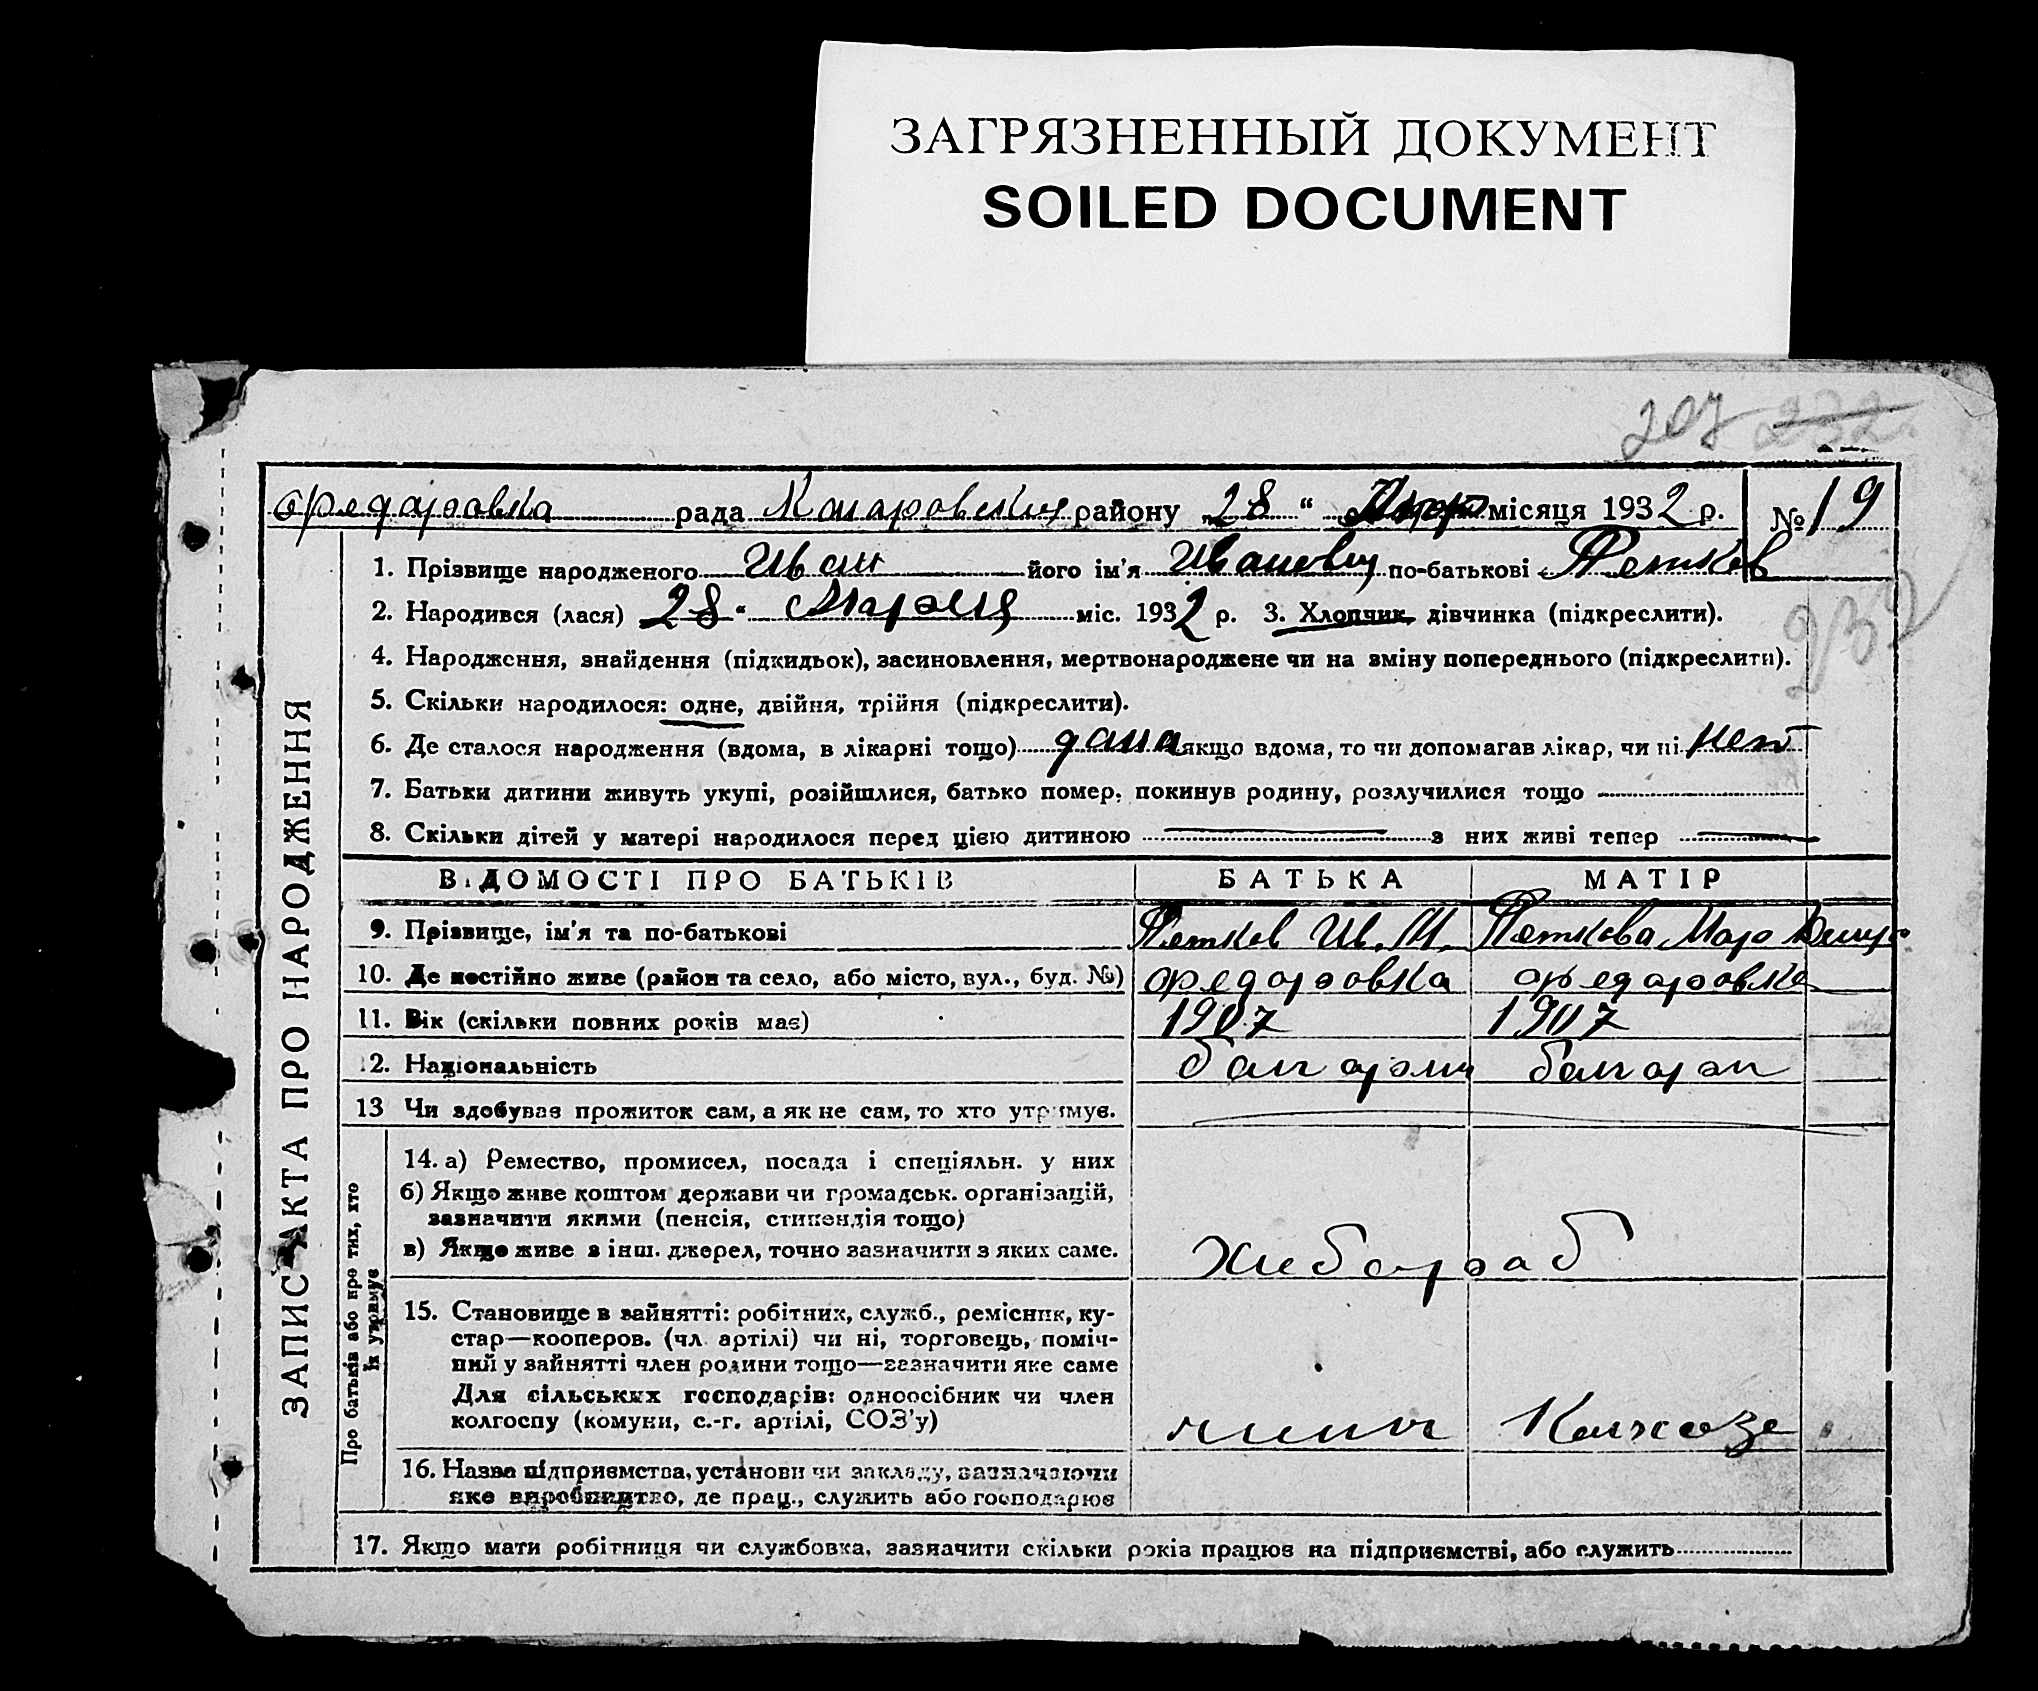 ЗАГРЯЗНЕННЫЙ ДОКУМЕНТ
SOILED DOCUMENT
207 232
Федаровка рада Комаровския району „28“ Март місяця 1932 р. № 19
1. Прізвище народженого Иван його ім'я Иванович по-батькові Петков
232
2. Народився (лася) 28 " Марта міс. 1932 р. 3. Хлопчик, дівчинка (підкреслити).
4. Народження, знайдення (підкидьок), засиновлення, мертвонароджене чи на зміну попереднього (підкреслити).
5. Скільки народилося: одне, двійня, трійня (підкреслити).
6. Де сталося народження (вдома, в лікарні тощо) дома якщо вдома, то чи допомагав лікар, чи ні нет
7. Батьки дитини живуть укупі, розійшлися, батько помер, покинув родину, розлучилися тощо
8. Скільки дітей у матері народилося перед цією дитиною — з них живі тепер —
ВІДОМОСТІ ПРО БАТЬКІВ БАТЬКА МАТІР
9. Прізвище, ім'я та по-батькові Петков Ив. М. Петкова Мар
10. Де постійно живе (район та село, або місто, вул., буд. №) Федаровка Федаровка
11. Вік (скільки повних років має) 1907 1907
12. Національність болгарин болгар
13 Чи здобував прожиток сам, а як не сам, то хто утримує.
14. а) Ремество, промисел, посада і спеціяльн. у них
б) Якщо живе коштом держави чи громадськ. організацій,
зазначити якими (пенсія, стипендія тощо)
в) Якщо живе з інш. джерел, точно зазначити з яких саме.
хлебороб
15. Становище в зайнятті: робітник, служб., ремісник, ку-
стар—кооперов. (чл. артілі) чи ні, торговець, поміч-
ний у зайнятті член родини тощо—зазначити яке саме
Для сільських господарів: одноосібник чи член
колгоспу (комуни, с.-г. артілі, СОЗ'у) член Колхоза
16. Назва підприємства, установи чи закладу, зазначаючи
яке виробництво, де прац., служить або господарює
17. Якщо мати робітниця чи службовка, зазначити скільки років працює на підприємстві, або служить
ЗАПИС АКТА ПРО НАРОДЖЕННЯ
Про батьків або про тих, хто
їх утримує